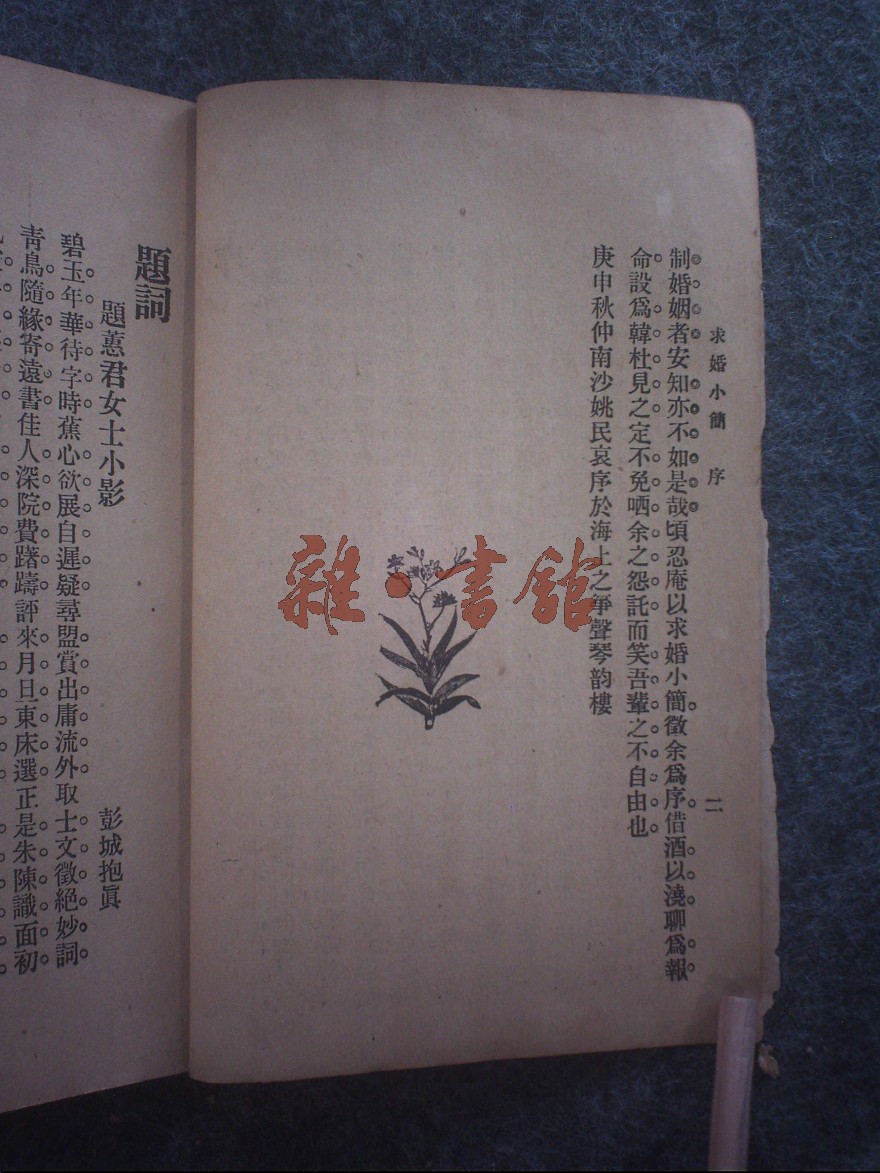 求婚小簡 序 二
制婚姻者安知亦不如是哉頃忍庵以求婚小簡徵余爲序借酒以澆聊爲報
命設爲韓杜見之定不免哂余之怨託而笑吾輩之不自由也
庚申秋仲南沙姚民哀序於海上之箏聲琴韵樓
雜·書館
題詞
題蕙君女士小影 彭城抱眞
碧玉年華待字時蕉心欲展自遲疑尋盟賞出庸流外取士文徵絕妙詞
靑鳥隨緣寄遠書佳人深院費躇躊評來月旦東床選正是朱陳識面初